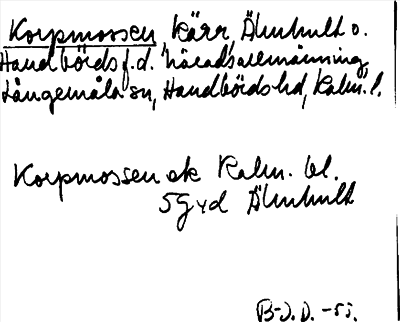 Korpmossen, kärr, Älmhult o.
Handbörds f.d. häradsallmänning,
Långemåla sn, Handbörds hd, Kalm. l.
Korpmossen ek Kalm. bl.
5G vd Älmhult
B-J. D. -55.